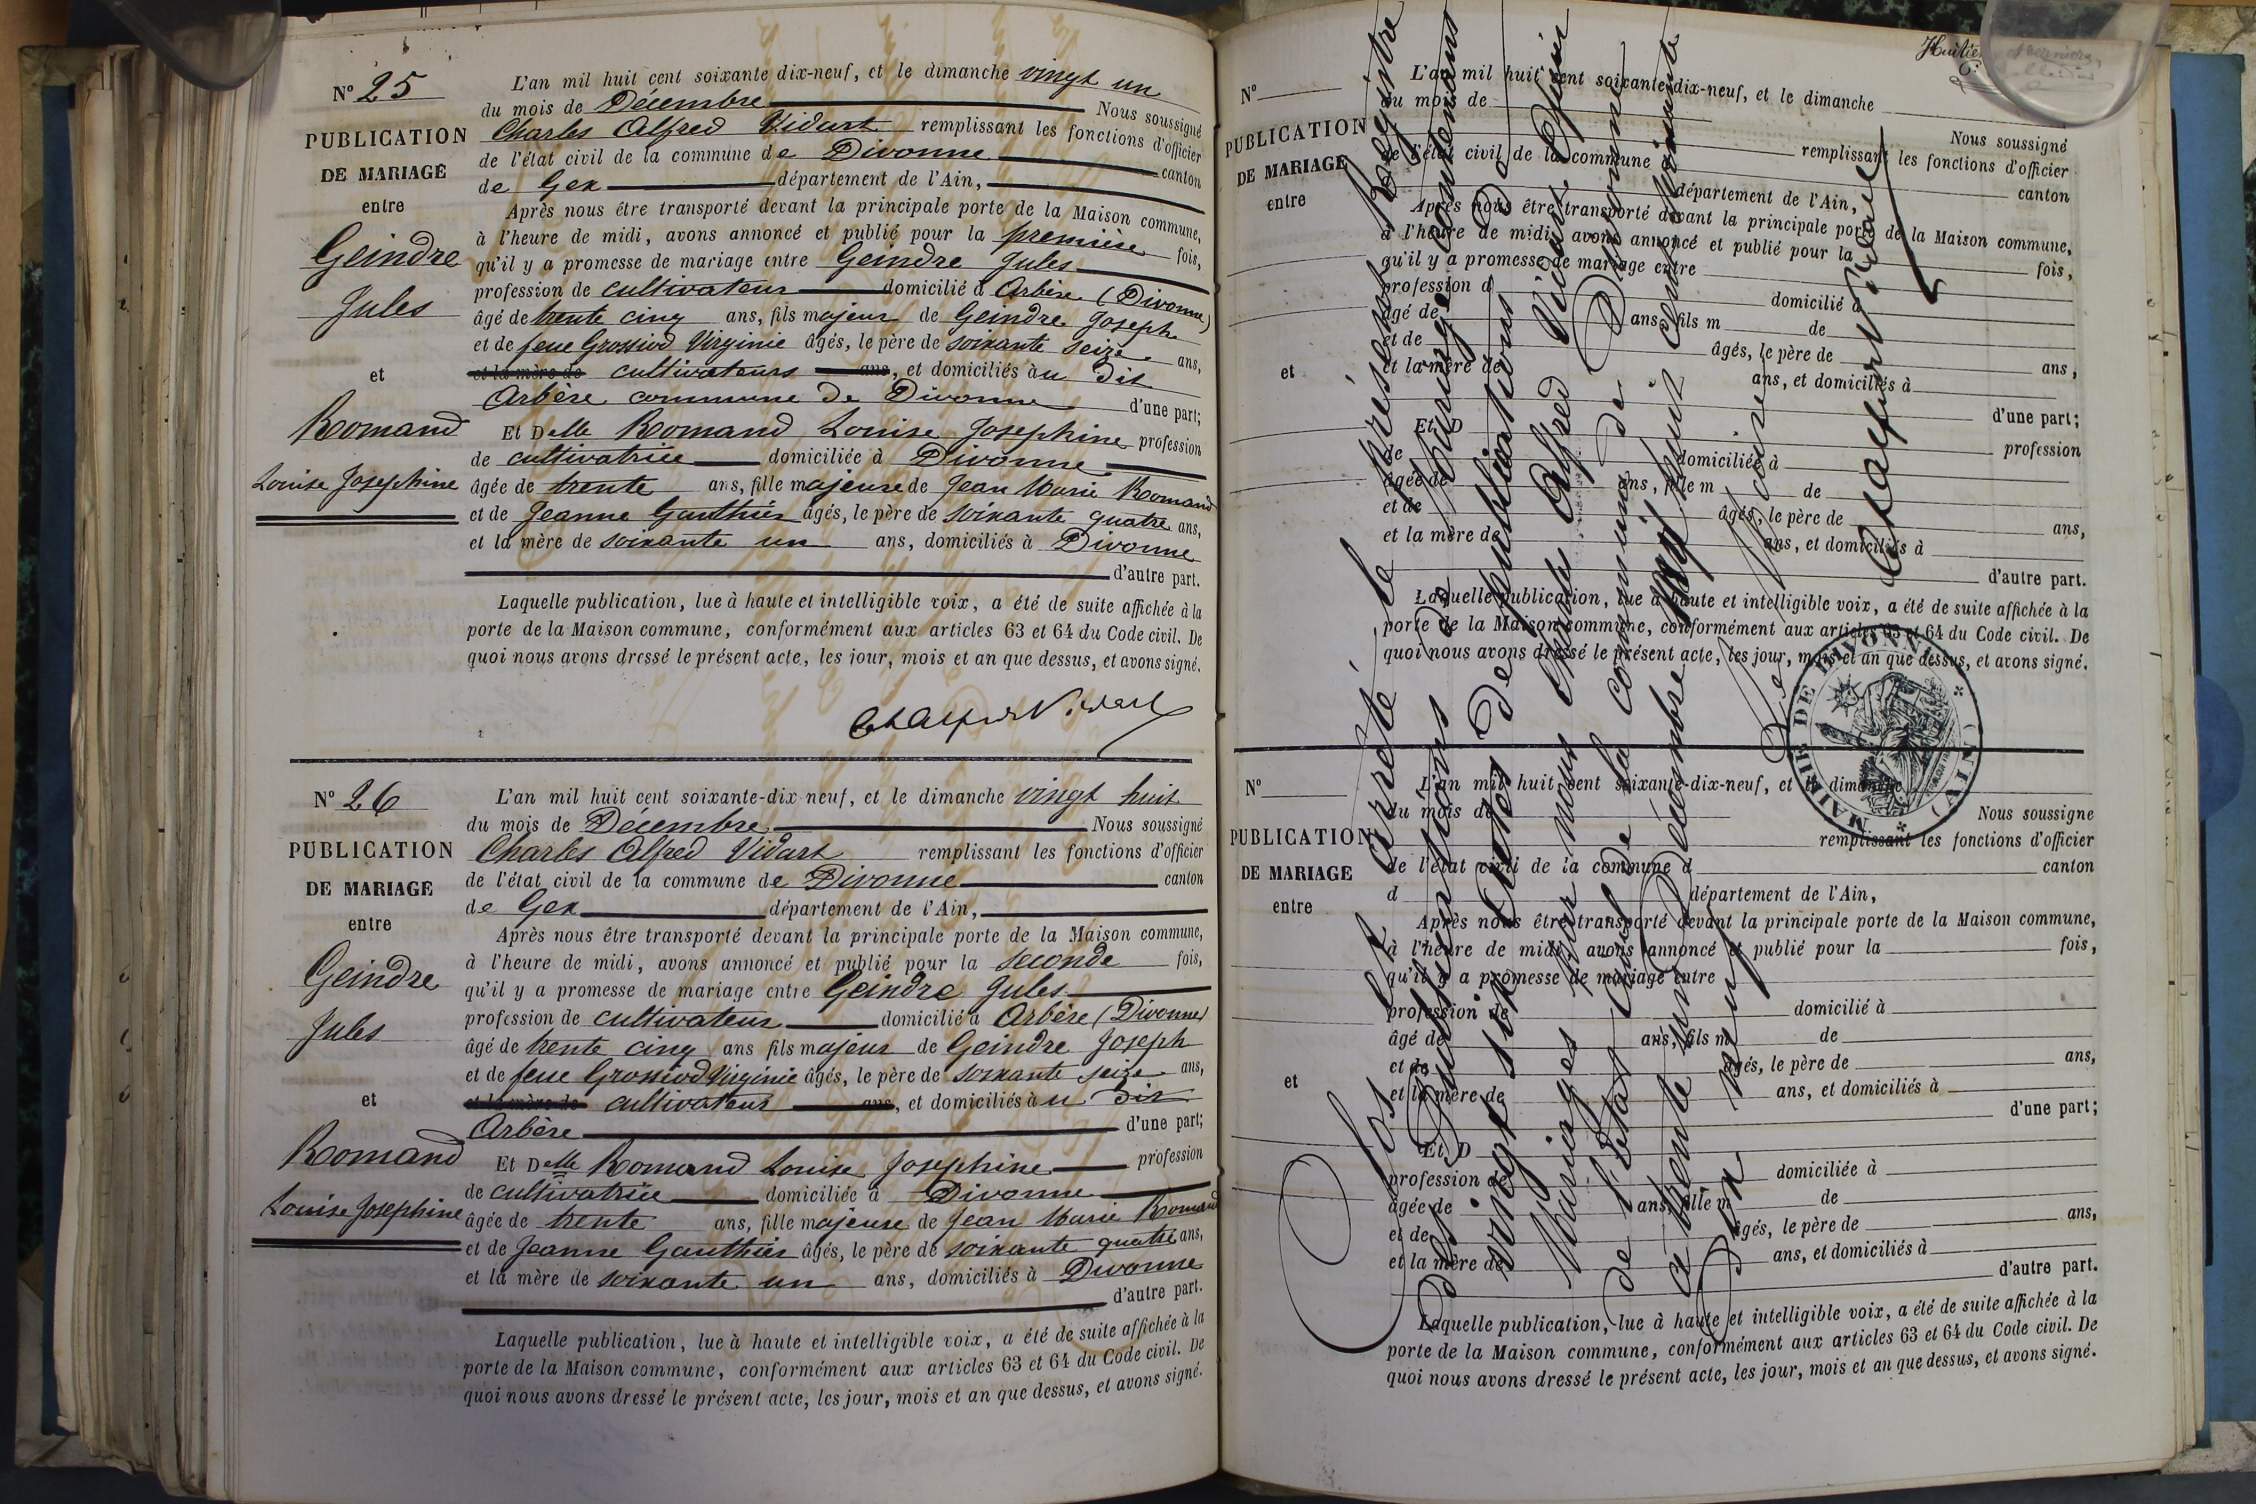 N° 25
PUBLICATION
DE MARIAGE
entre
Geindre
Jules
et
Romand
Louise Josephine
L'an mil huit cent soixante dix-neuf, et le dimanche vingt un
du mois de Décembre Nous soussigné
Charles Alfred Vidart remplissant les fonctions d'officier
de l'état civil de la commune de Divonne canton
de Gex département de l'Ain,
Après nous être transporté devant la principale porte de la Maison commune,
à l'heure de midi, avons annoncé et publié pour la première fois,
qu'il y a promesse de mariage entre Geindre Jules
profession de cultivateur domicilié à Arbère (Divonne)
âgé de trente cinq ans, fils majeur de Geindre Joseph
et de feue Grossiod Virginie âgés, le père de soixante seize ans,
et la mère de cultivateurs ans, et domiciliés àu dit
Arbère commune de Divonne d'une part;
Et Delle Romand Louise Josephine profession
de cultivatrice domiciliée à Divonne
âgée de trente ans, fille majeure de Jean Marie Romand
et de Jeanne Gauthier âgés, le père de soixante quatre ans,
et la mère de soixante un ans, domiciliés à Divonne
d'autre part.
Laquelle publication, lue à haute et intelligible voix, a été de suite affichée à la
porte de la Maison commune, conformément aux articles 63 et 64 du Code civil. De
quoi nous avons dressé le présent acte, les jour, mois et an que dessus, et avons signé.
Ch Alfred Vidart
N° 26
PUBLICATION
DE MARIAGE
entre
Geindre
Jules
et
Romand
Louise Josephine
L'an mil huit cent soixante-dix-neuf, et le dimanche vingt huit
du mois de Décembre Nous soussigné
Charles Alfred Vidart remplissant les fonctions d'officier
de l'état civil de la commune de Divonne canton
de Gex département de l'Ain,
Après nous être transporté devant la principale porte de la Maison commune,
à l'heure de midi, avons annoncé et publié pour la seconde fois,
qu'il y a promesse de mariage entre Geindre Jules
profession de cultivateur domicilié à Arbère (Divonne)
âgé de trente cinq ans fils majeur de Geindre Joseph
et de feue Grossiod Virginie âgés, le père de soixante seize ans,
et la mère de cultivateur ans, et domiciliés àu dit
Arbère d'une part;
Et Delle Romand Louise Josephine profession
de cultivatrice domiciliée à Divonne
âgée de trente ans, fille majeure de Jean Marie Romand
et de Jeanne Gauthier âgés, le père de soixante quatre ans,
et la mère de soixante un ans, domiciliés à Divonne
d'autre part.
Laquelle publication, lue à haute et intelligible voix, a été de suite affichée à la
porte de la Maison commune, conformément aux articles 63 et 64 du Code civil. De
quoi nous avons dressé le présent acte, les jour, mois et an que dessus, et avons signé.
N°
PUBLICATION
DE MARIAGE
entre
et
L'an mil huit cent soixante-dix-neuf, et le dimanche
du mois de Nous soussigné
remplissant les fonctions d'officier
de l'état civil de la commune canton
département de l'Ain,
Après nous être transporté devant la principale porte de la Maison commune,
à l'heure de midi, avons annoncé et publié pour la fois,
qu'il y a promesse de mariage entre
profession d domicilié à
âgé de ans, fils m de
et de âgés, le père de ans,
et la mère de ans, et domiciliés à
d'une part;
Et D profession
de domiciliée à
âgée de ans, fille m de
et de âgés, le père de ans,
et la mère de ans, et domiciliés à
d'autre part.
Laquelle publication, lue à haute et intelligible voix, a été de suite affichée à la
porte de la Maison commune, conformément aux articles 63 et 64 du Code civil. De
quoi nous avons dressé le présent acte, les jour, mois et an que dessus, et avons signé.
N°
PUBLICATION
DE MARIAGE
entre
et
L'an mil huit cent soixante-dix-neuf, et le dimanche
du mois de Nous soussigné
remplissant les fonctions d'officier
de l'état civil de la commune d canton
d département de l'Ain,
Après nous être transporté devant la principale porte de la Maison commune,
à l'heure de midi, avons annoncé et publié pour la fois,
qu'il y a promesse de mariage entre
profession de domicilié à
âgé de ans, fils m de
et de âgés, le père de ans,
et la mère de ans, et domiciliés à
d'une part;
Et D
profession de domiciliée à
âgée de ans, fille m de
et de âgés, le père de ans,
et la mère de ans, et domiciliés à
d'autre part.
Laquelle publication, lue à haute et intelligible voix, a été de suite affichée à la
porte de la Maison commune, conformément aux articles 63 et 64 du Code civil. De
quoi nous avons dressé le présent acte, les jour, mois et an que dessus, et avons signé.
Clos et arrêté le présent Registre
des Publications de Mariage contenant
vingt six Actes de publications de
Mariages par nous Charles Alfred Vidart Officier
de l'Etat Civil de la commune de Divonne
a trente un Décembre Mil huit cent soixante
dix neuf
Le Maire
Ch Alfred Vidart
MAIRIE DE DIVONNE (AIN)